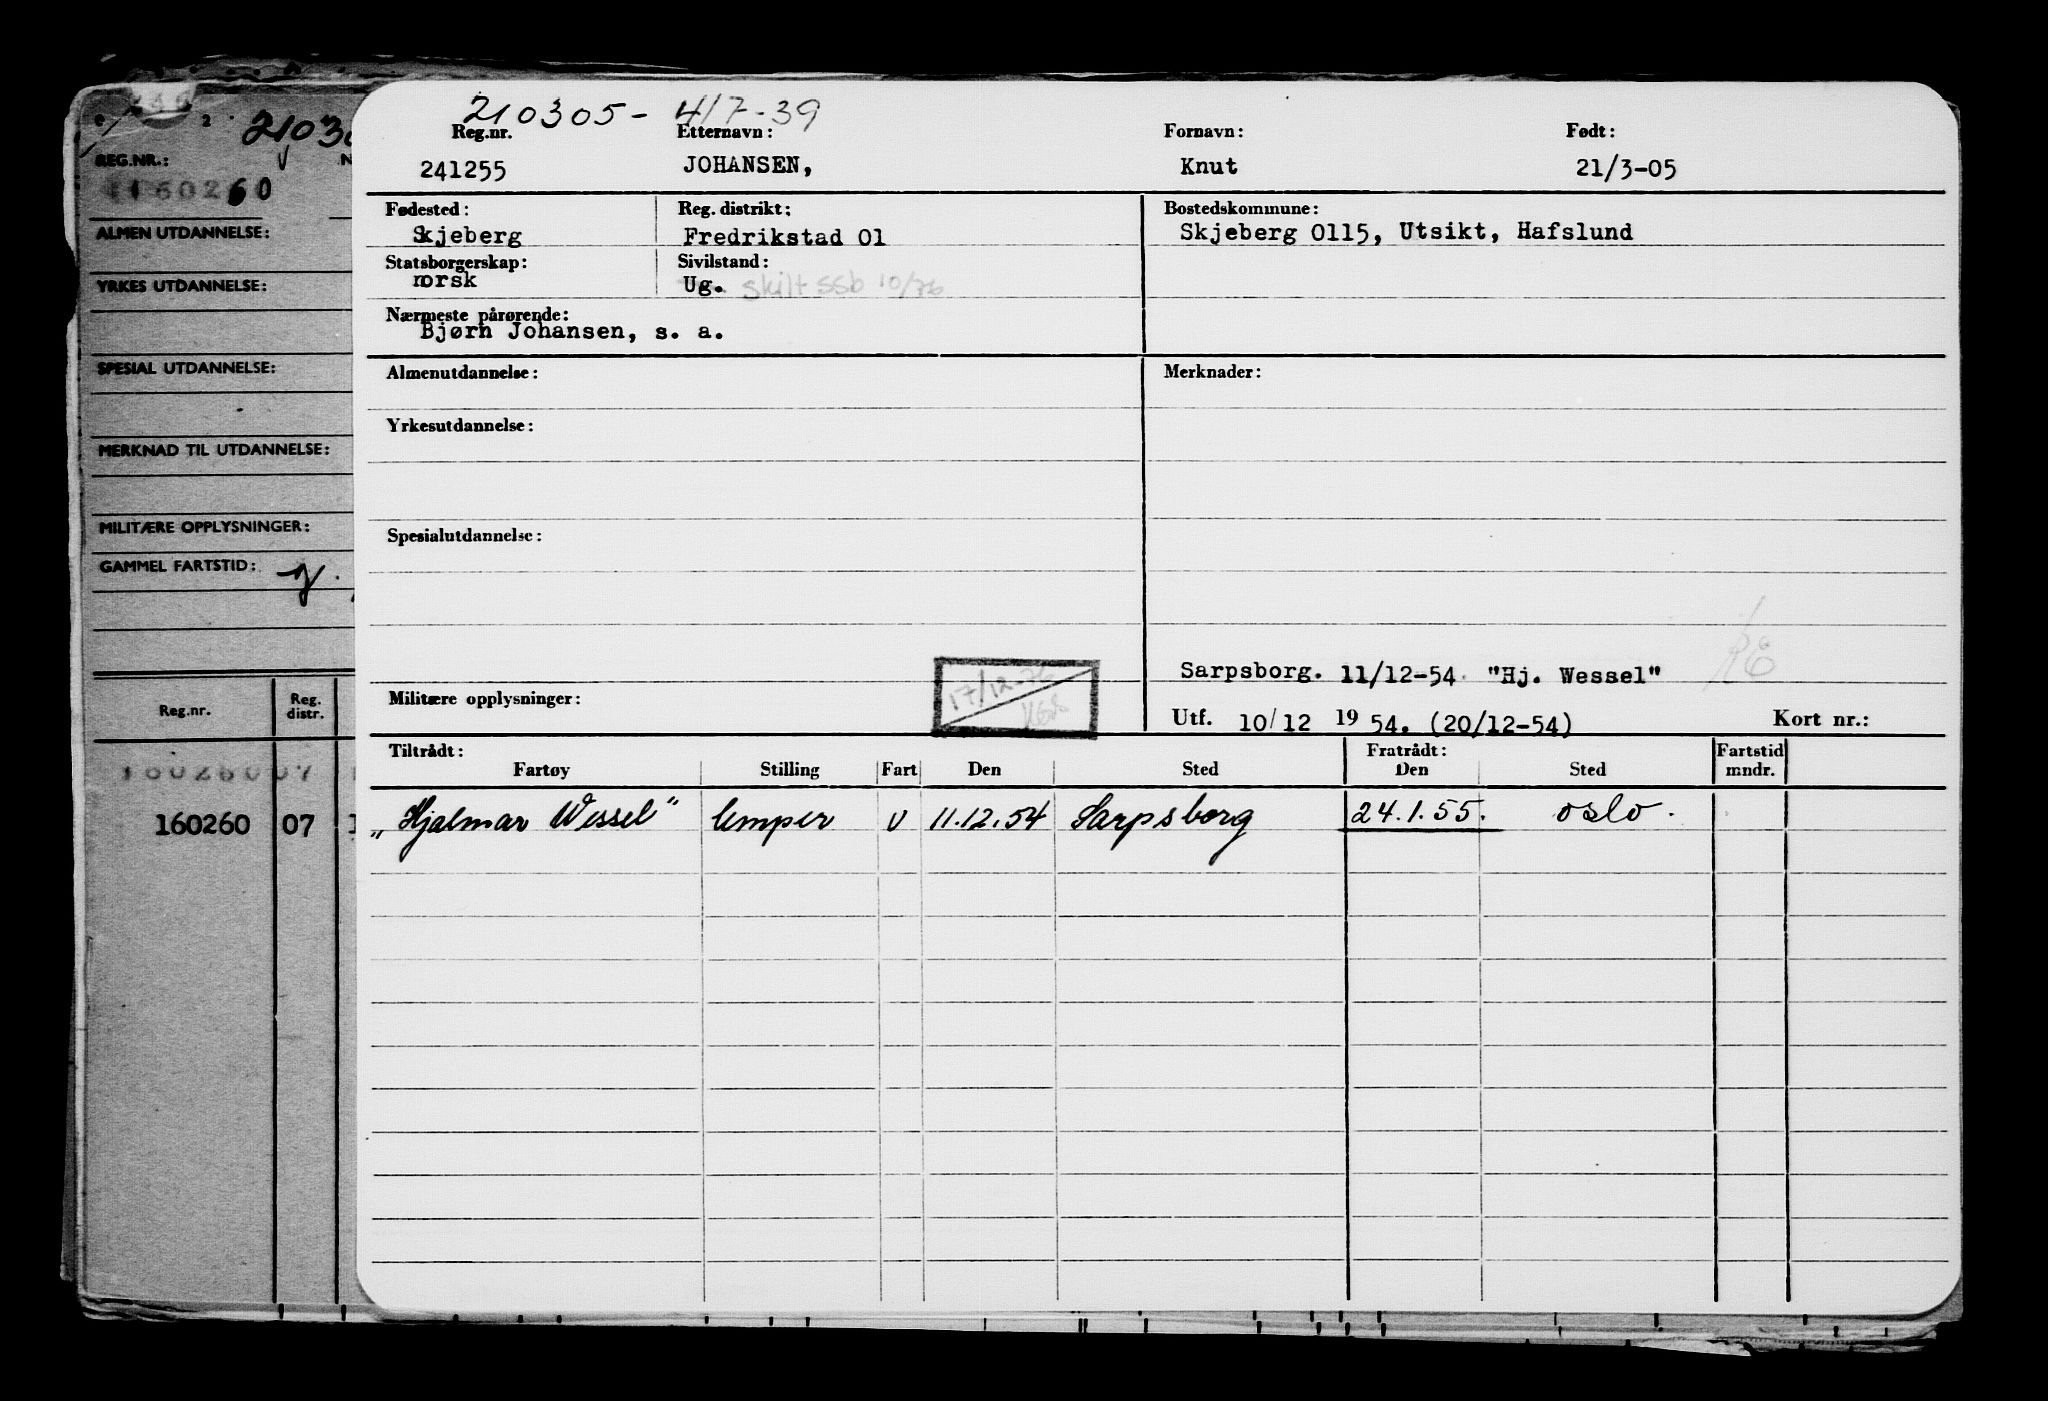 210305- 417-39
Reg.nr. Etternavn: Fornavn: Født:
241255 JOHANSEN, Knut 21/3-05
Fødested: Reg. distrikt: Bostedskommune:
Skjeberg Fredrikstad 01 Skjeberg 0115, Utsikt, Hafslund
Statsborgerskap: Sivilstand:
norsk Ug. skilt ssb 10/76
Nærmeste pårørende:
Bjørn Johansen, s. a.
Almenutdannelse: Merknader:
Yrkesutdannelse:
Spesialutdannelse:
Sarpsborg. 11/12-54. "Hj. Wessel"
Militære opplysninger: 17/12-76
Utf. 10/12 1954. (20/12-54) Kort nr.:
Tiltrådt: Fratrådt: Fartstid
Fartøy Stilling Fart Den Sted Den Sted mndr.
„Hjalmar Wessel" lemper U 11.12.54 Sarpsborg 24.1.55. oslo.
2 21030
REG.NR.: N
160260
ALMEN UTDANNELSE:
YRKES UTDANNELSE:
SPESIAL UTDANNELSE:
MERKNAD TIL UTDANNELSE:
MILITÆRE OPPLYSNINGER:
GAMMEL FARTSTID:
Reg.nr. Reg.
distr.
160260 07
160260 07 1